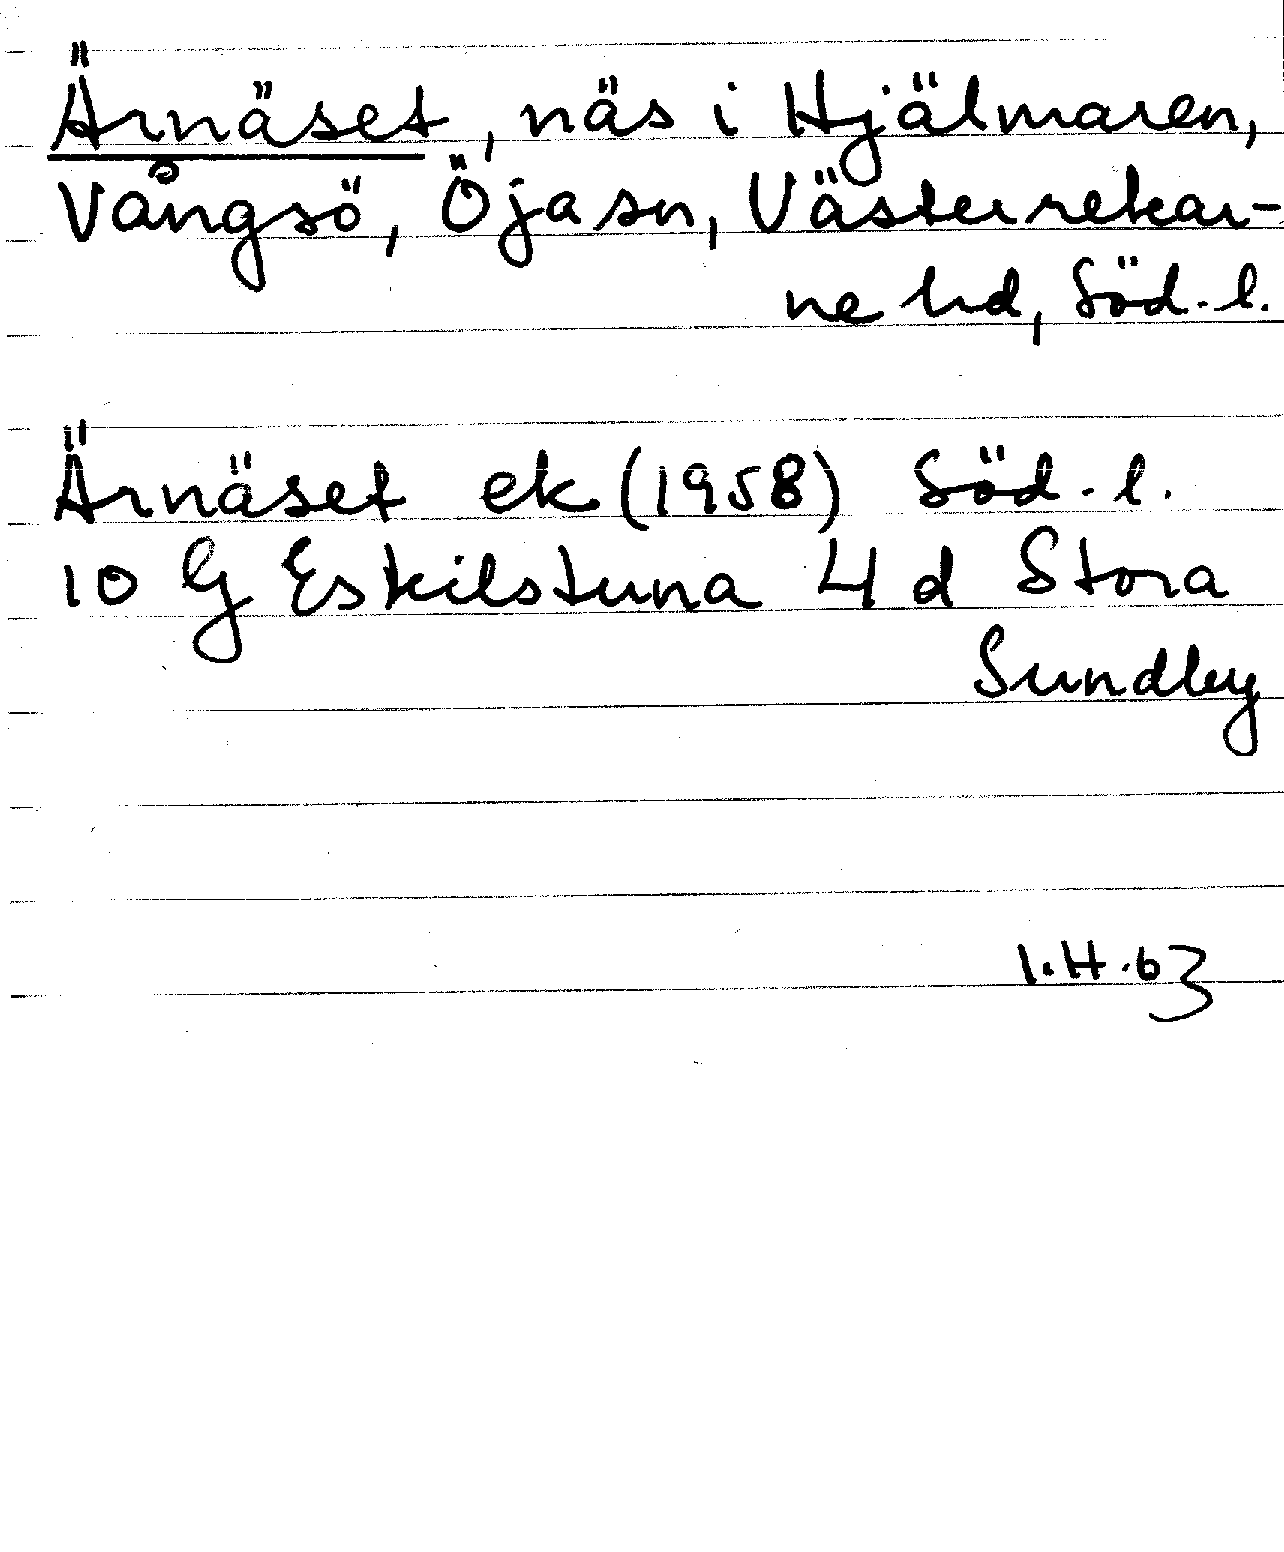 Ärnäset, näs i Hjälmaren,
Vångsö, Öja sn, Västerrekar-
ne hd, Söd. l.
Ärnäset ek (1958) Söd. l.
10 G Eskilstuna 4 d Stora
Sundby
I.H.63